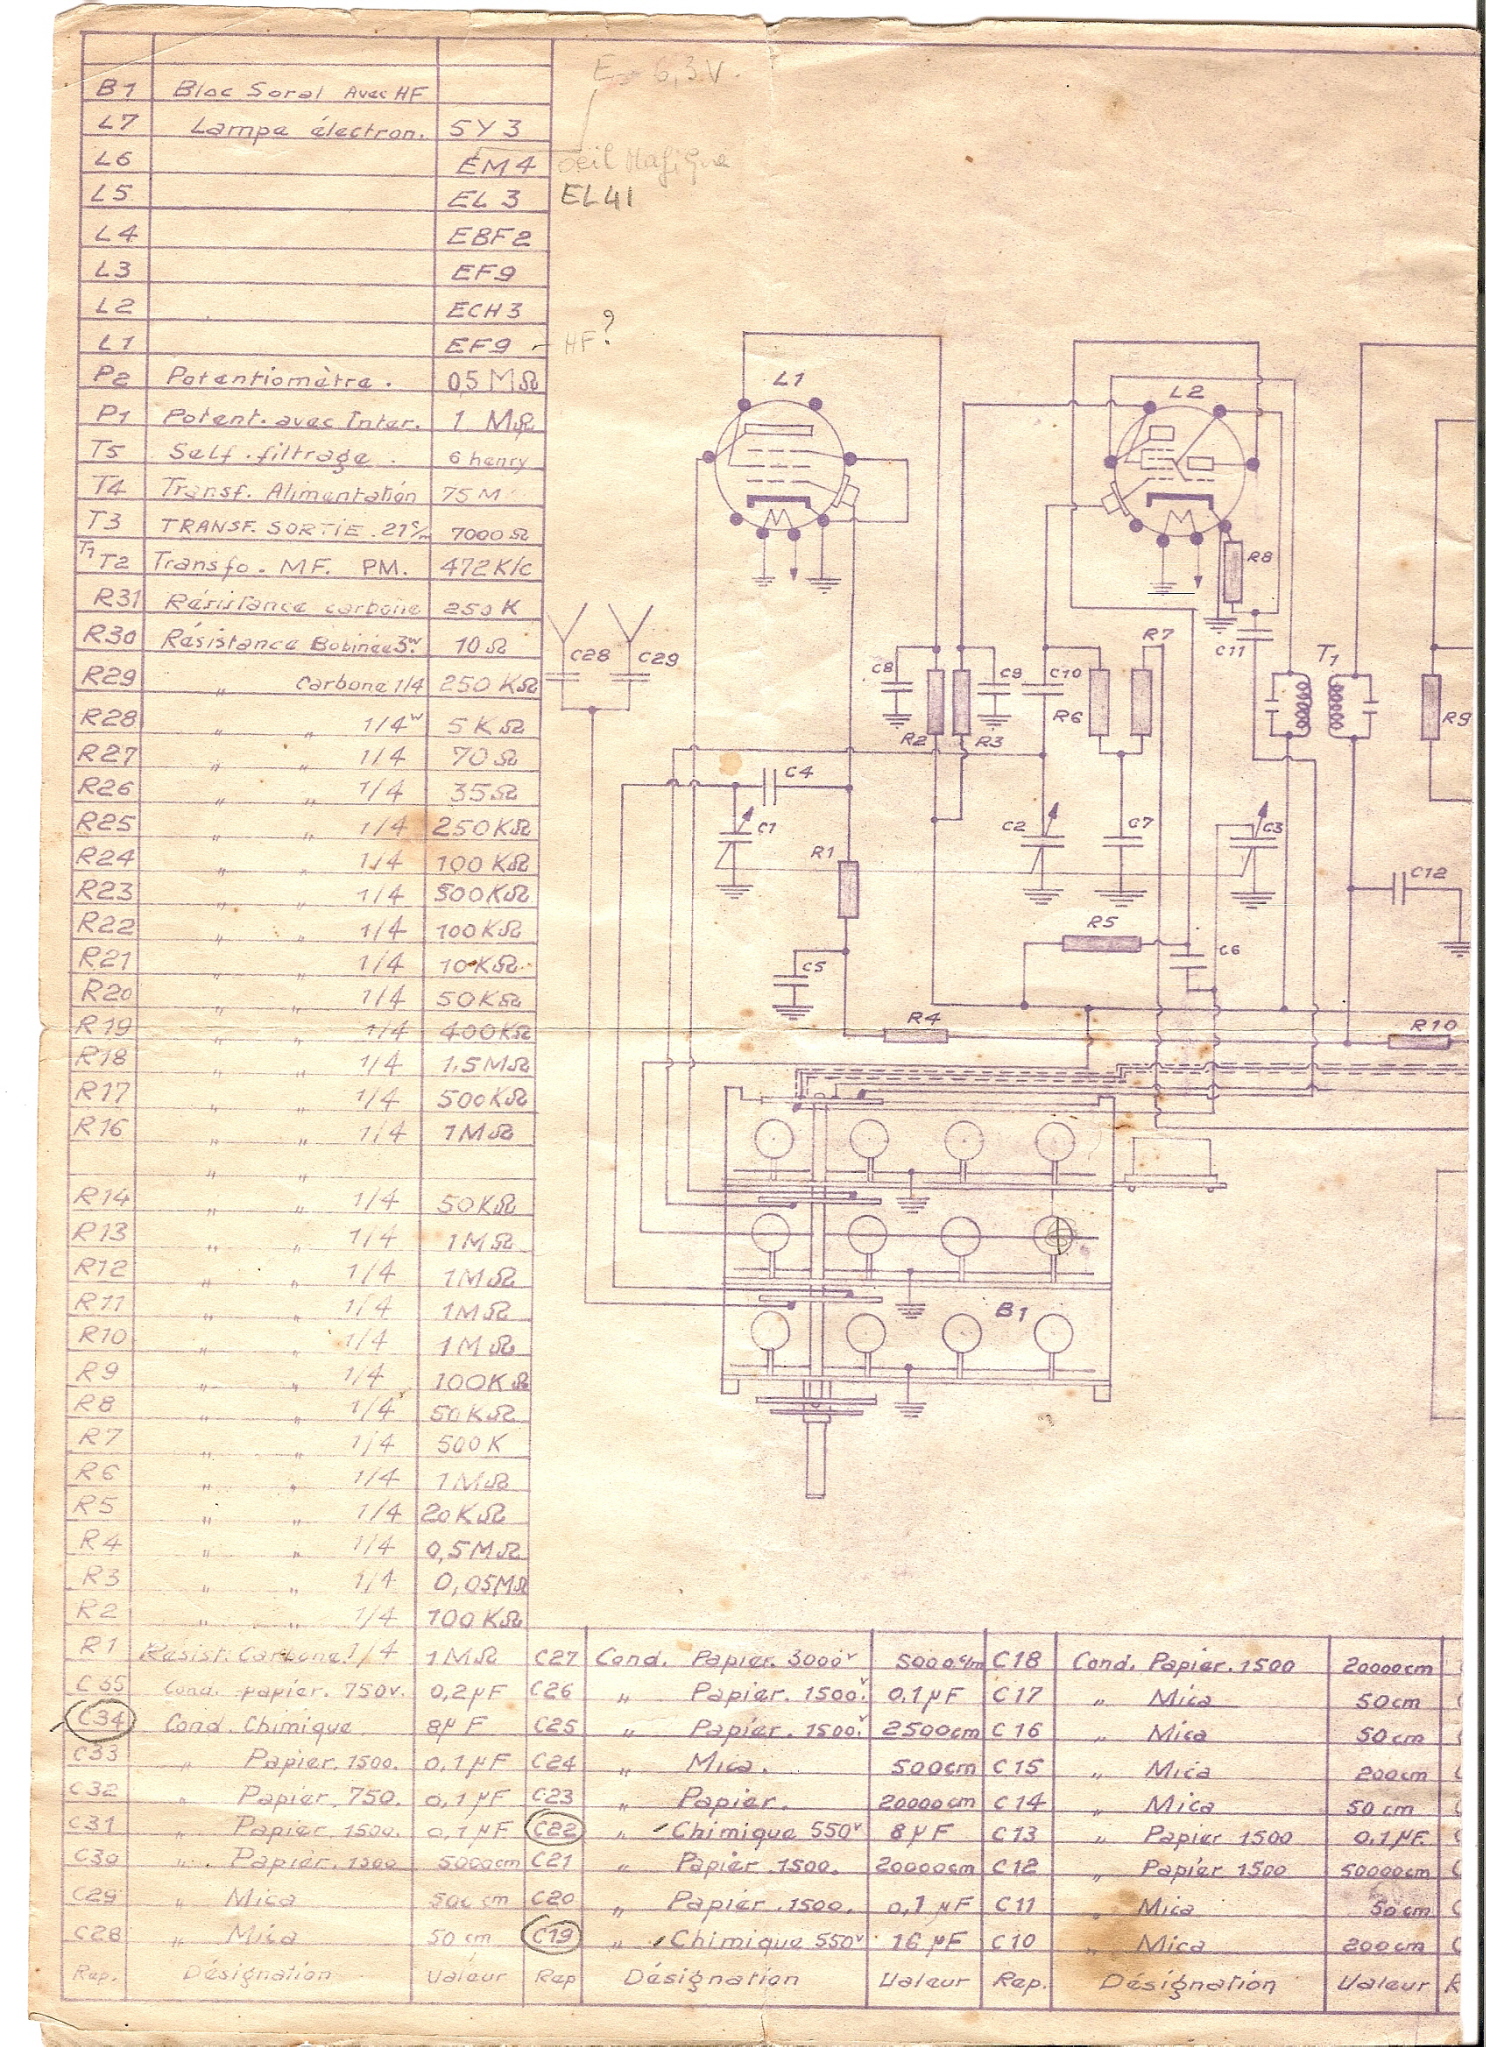 E = 6,3 V.
B1 Bloc Soral Avec HF
L7 Lampe électron. 5Y3
L6 EM4 oeil Magique
L5 EL3 EL41
L4 EBF2
L3 EF9
L2 ECH3
L1 EF9 - HF ?
P2 Potentiomètre. 05 MΩ
P1 Potent. avec Inter. 1 MΩ
T5 Self. filtrage. 6 henry
T4 Transf. Alimentation 75 M
T3 TRANSF. SORTIE. 21c/m 7000 Ω
T1 T2 Transfo. MF. PM. 472 K/c
R31 Résistance carbone 250 K
R30 Résistance Bobinée 3w. 10 Ω
R29 " Carbone 1/4 250 KΩ
R28 " " 1/4w 5 KΩ
R27 " " 1/4 70 Ω
R26 " " 1/4 35 Ω
R25 " " 1/4 250 KΩ
R24 " " 1/4 100 KΩ
R23 " " 1/4 500 KΩ
R22 " " 1/4 100 KΩ
R21 " " 1/4 10 KΩ
R20 " " 1/4 50 KΩ
R19 " " 1/4 400 KΩ
R18 " " 1/4 1,5 MΩ
R17 " " 1/4 500 KΩ
R16 " " 1/4 1 MΩ
" "
R14 " " 1/4 50 KΩ
R13 " " 1/4 1 MΩ
R12 " " 1/4 1 MΩ
R11 " " 1/4 1 MΩ
R10 " " 1/4 1 MΩ
R9 " " 1/4 100 KΩ
R8 " " 1/4 50 KΩ
R7 " " 1/4 500 K
R6 " " 1/4 1 MΩ
R5 " " 1/4 20 KΩ
R4 " " 1/4 0,5 MΩ
R3 " " 1/4 0,05 MΩ
R2 " " 1/4 100 KΩ
R1 Résist. Carbone 1/4 1 MΩ
C35 Cond. papier. 750v. 0,2 µF
C34 Cond. Chimique 8 µF
C33 " Papier. 1500. 0,1 µF
C32 " Papier. 750. 0,1 µF
C31 " Papier 1500. 0,1 µF
C30 " Papier. 1500 5000cm
C29 " Mica 500 cm
C28 " Mica 50 cm
Rep. Désignation Valeur
C27 Cond. Papier. 3000v 5000c/m
C26 " Papier. 1500v. 0.1 µF
C25 " Papier. 1500v. 2500cm
C24 " Mica. 500cm
C23 " Papier. 20000cm
C22 " Chimique 550v 8 µF
C21 " Papier. 1500. 20000cm
C20 " Papier. 1500. 0,1 µF
C19 " Chimique 550v 16 µF
Rep Désignation Valeur
C18 Cond. Papier. 1500 20000cm
C17 " Mica 50cm
C16 " Mica 50cm
C15 " Mica 200cm
C14 " Mica 50 cm
C13 " Papier 1500 0.1 µF.
C12 " Papier 1500 50000cm
C11 " Mica 50 cm
C10 " Mica 200cm
Rep. Désignation Valeur
L1
L2
R8
C28
C29
C8
R2
R3
C9
C10
R6
R7
C11
T1
R9
C4
C1
R1
C2
C7
C3
C12
R5
C6
C5
R4
R10
B1